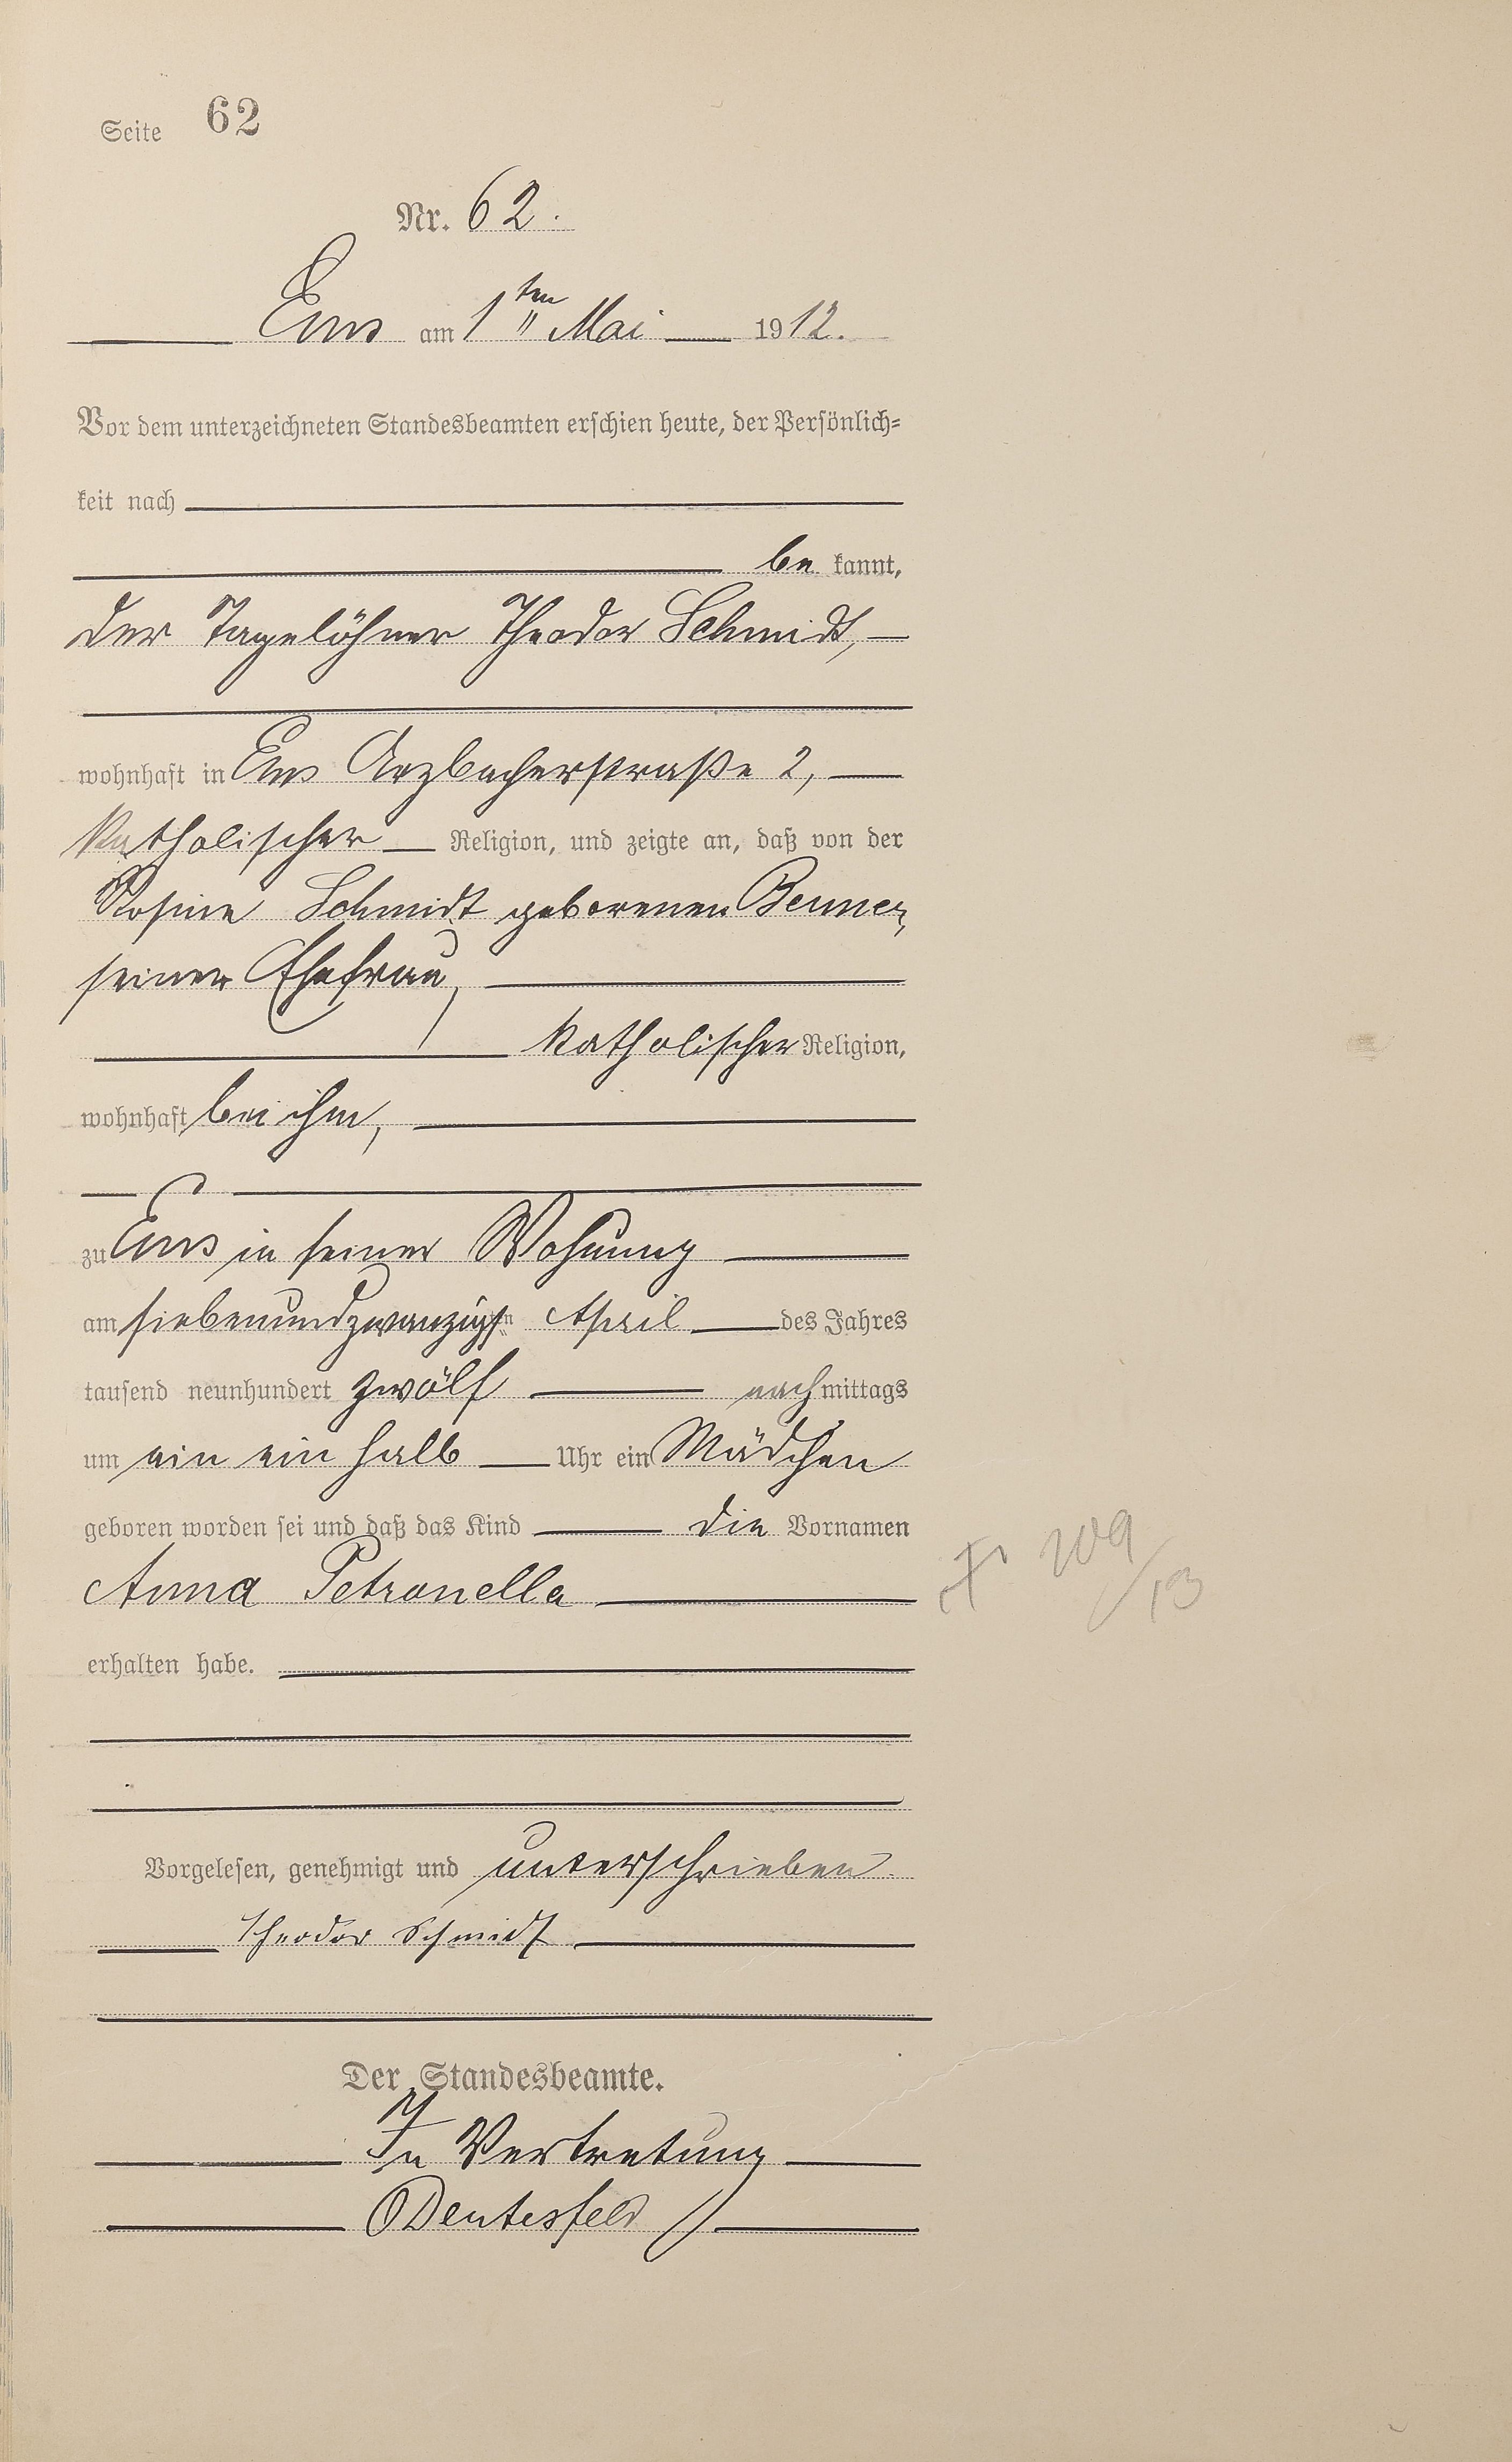 Seite 62
Nr. 62.
Ems am 1ten Mai 1912.
Vor dem unterzeichneten Standesbeamten erschien heute, der Persönlich-
keit nach
bekannt,
der Tagelöhner Theodor Schmidt,
wohnhaft in Ems Arzbacherstraße 2,
katholischer Religion, und zeigte an, daß von der
Rosine Schmidt geborenen Benner,
seiner Ehefrau,
katholischer Religion,
wohnhaft bei ihm,
zu Ems in seiner Wohnung
am siebenundzwanzigsten April des Jahres
tausend neunhundert zwölf nachmittags
um ein ein halb Uhr ein Mädchen
geboren worden sei und daß das Kind die Vornamen
Anna Petronella
† 109/13
erhalten habe.
Vorgelesen, genehmigt und unterschrieben.
Theodor Schmidt
Der Standesbeamte.
In Vertretung